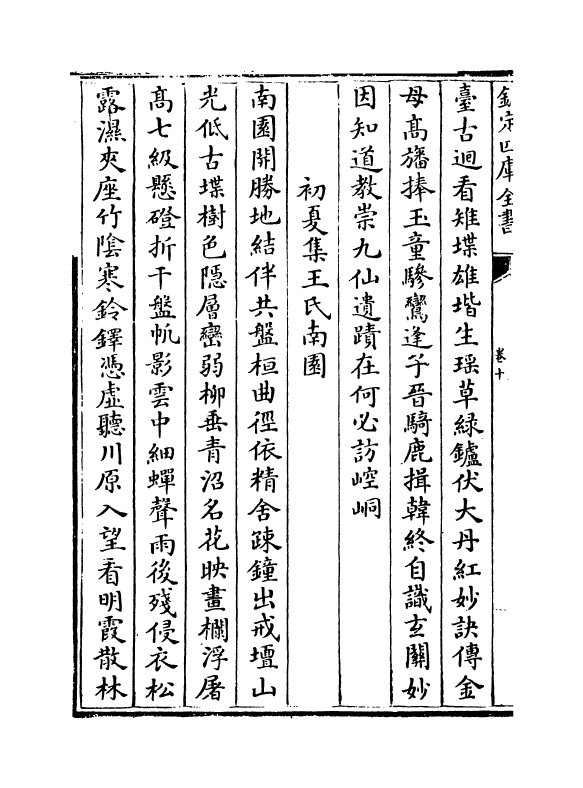 欽定四庫全書
卷十
臺古迴看雉堞雄堦生瑶草緑鑪伏大丹紅妙訣傳金
母髙旛捧玉童驂鸞逢子晉騎鹿揖韓終自識玄關妙
因知道教崇九仙遺蹟在何必訪崆峒
初夏集王氏南園
南園開勝地結伴共盤桓曲徑依精舍疎鐘出戒壇山
光低古堞樹色隠層巒弱柳垂青沼名花映畫欄浮屠
髙七級懸磴折千盤帆影雲中細蟬聲雨後殘侵衣松
露濕夾座竹陰寒鈴鐸憑虛聽川原入望看明霞散林